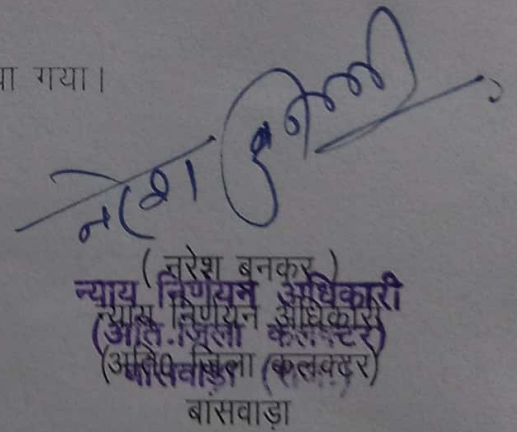 गया।
नरेश
( नरेश बुनकर )
न्याय निर्णयन अधिकारी
न्याय निर्णयन अधिकारी
(अति.जिला कलक्टर)
(अति० जिला कलक्टर)
बांसवाड़ा
बांसवाड़ा